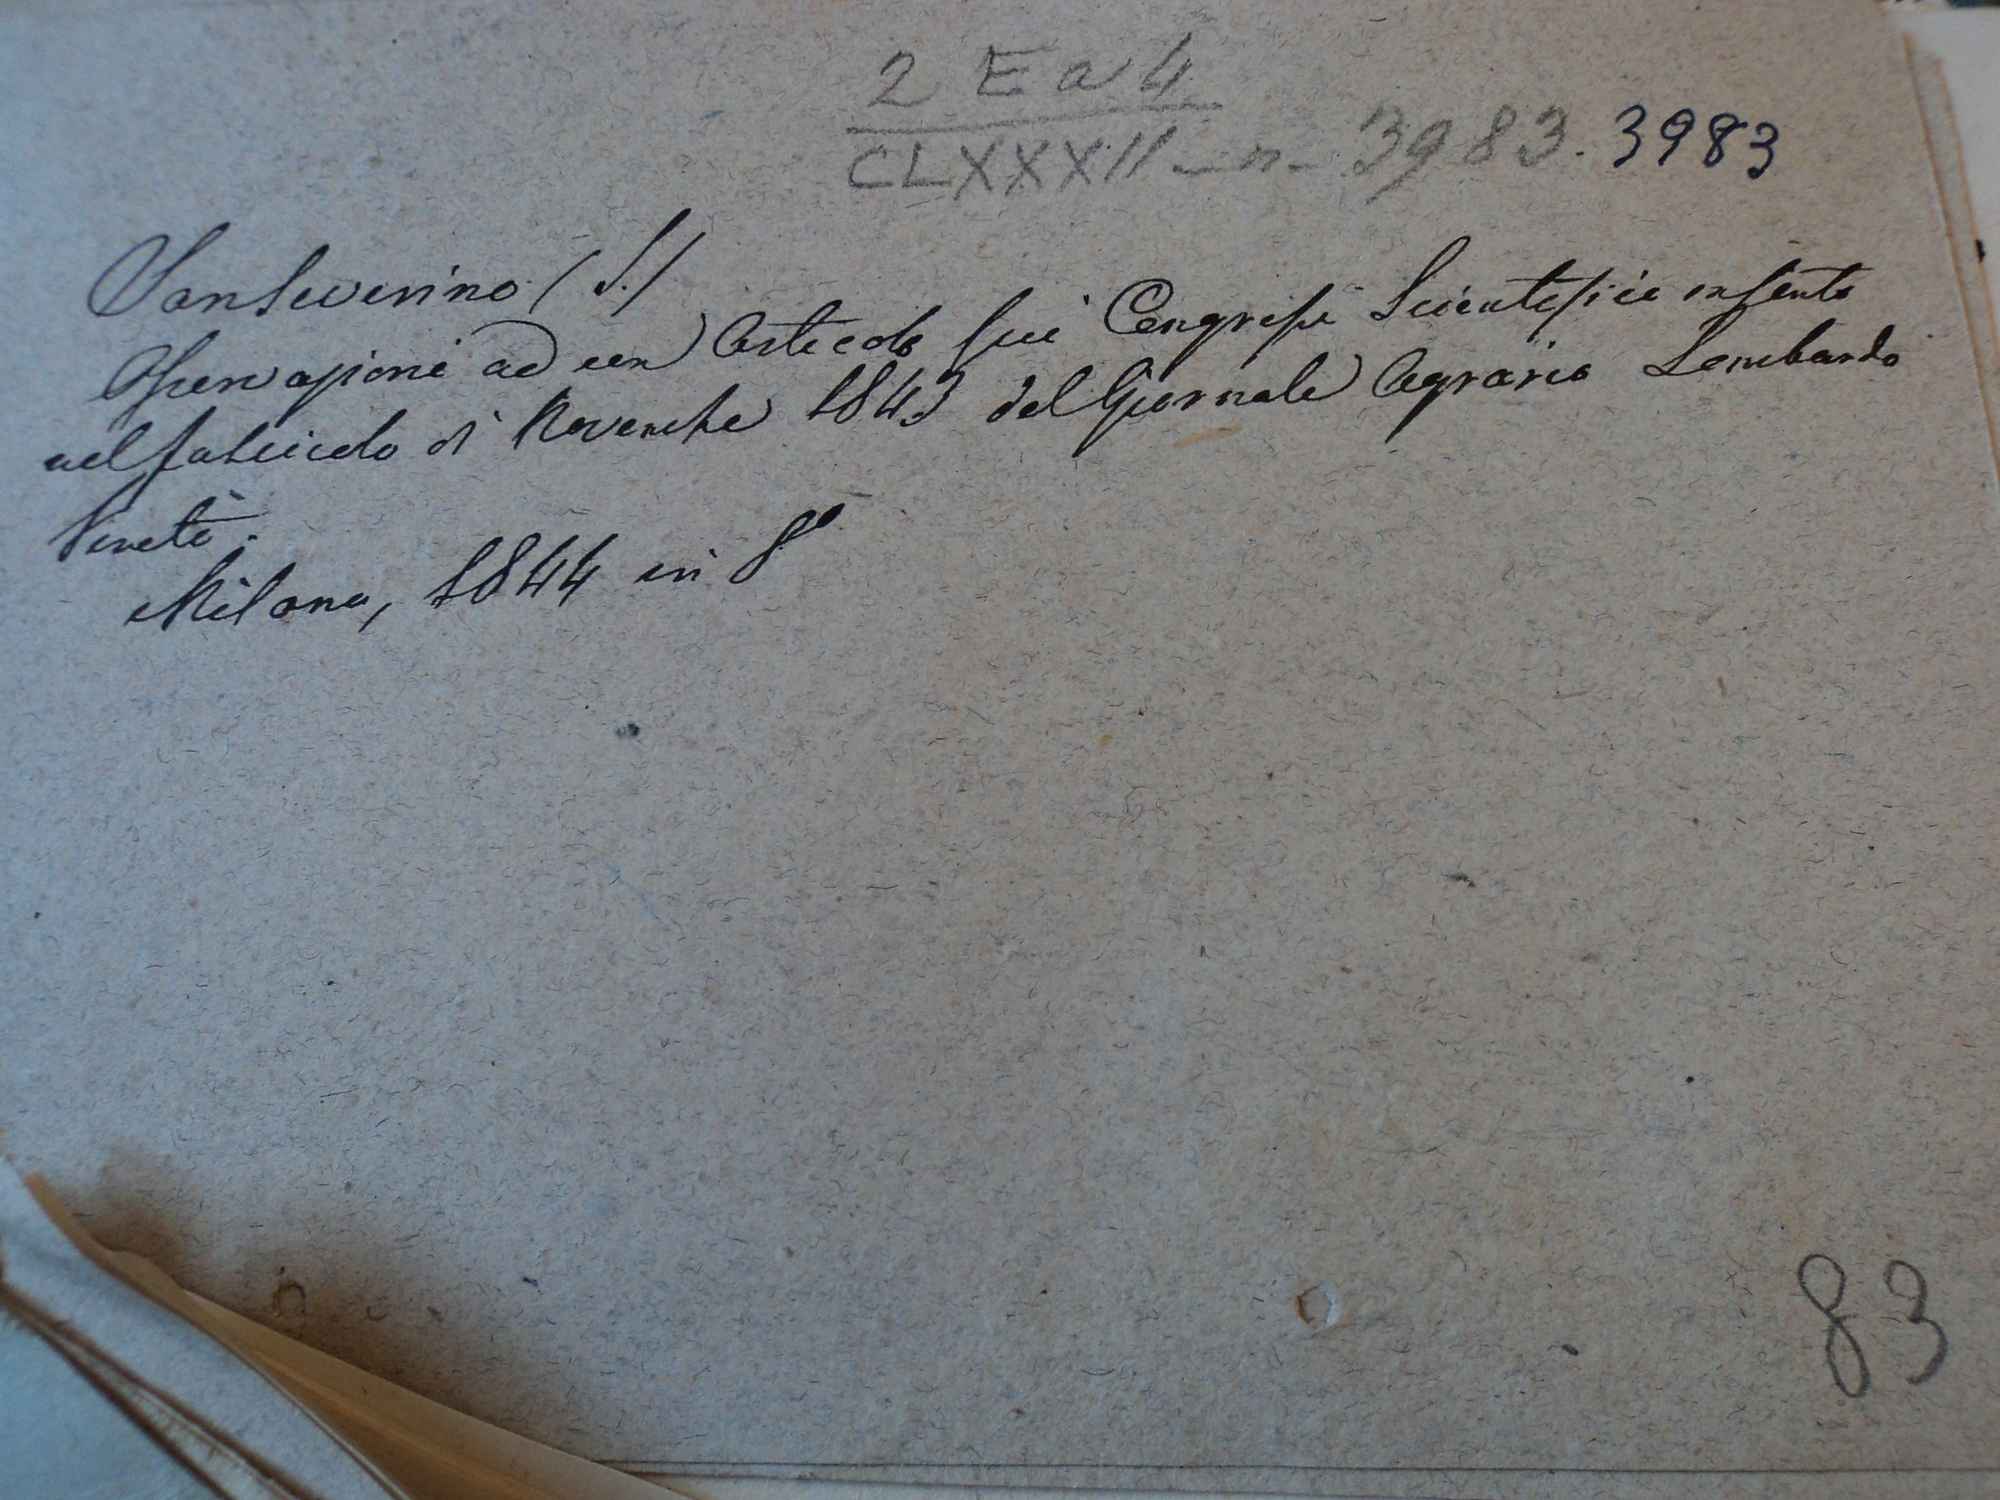 2 E a 4
CLXXXII - n - 3983. 3983
Sanseverino (S.)
Osservazioni ad un Articolo sui Congressi Scientifici inserito
nel fascicolo di Novembre 1843 del Giornale Agrario Lombardo
Veneto.
Milano, 1844 in 8°
83